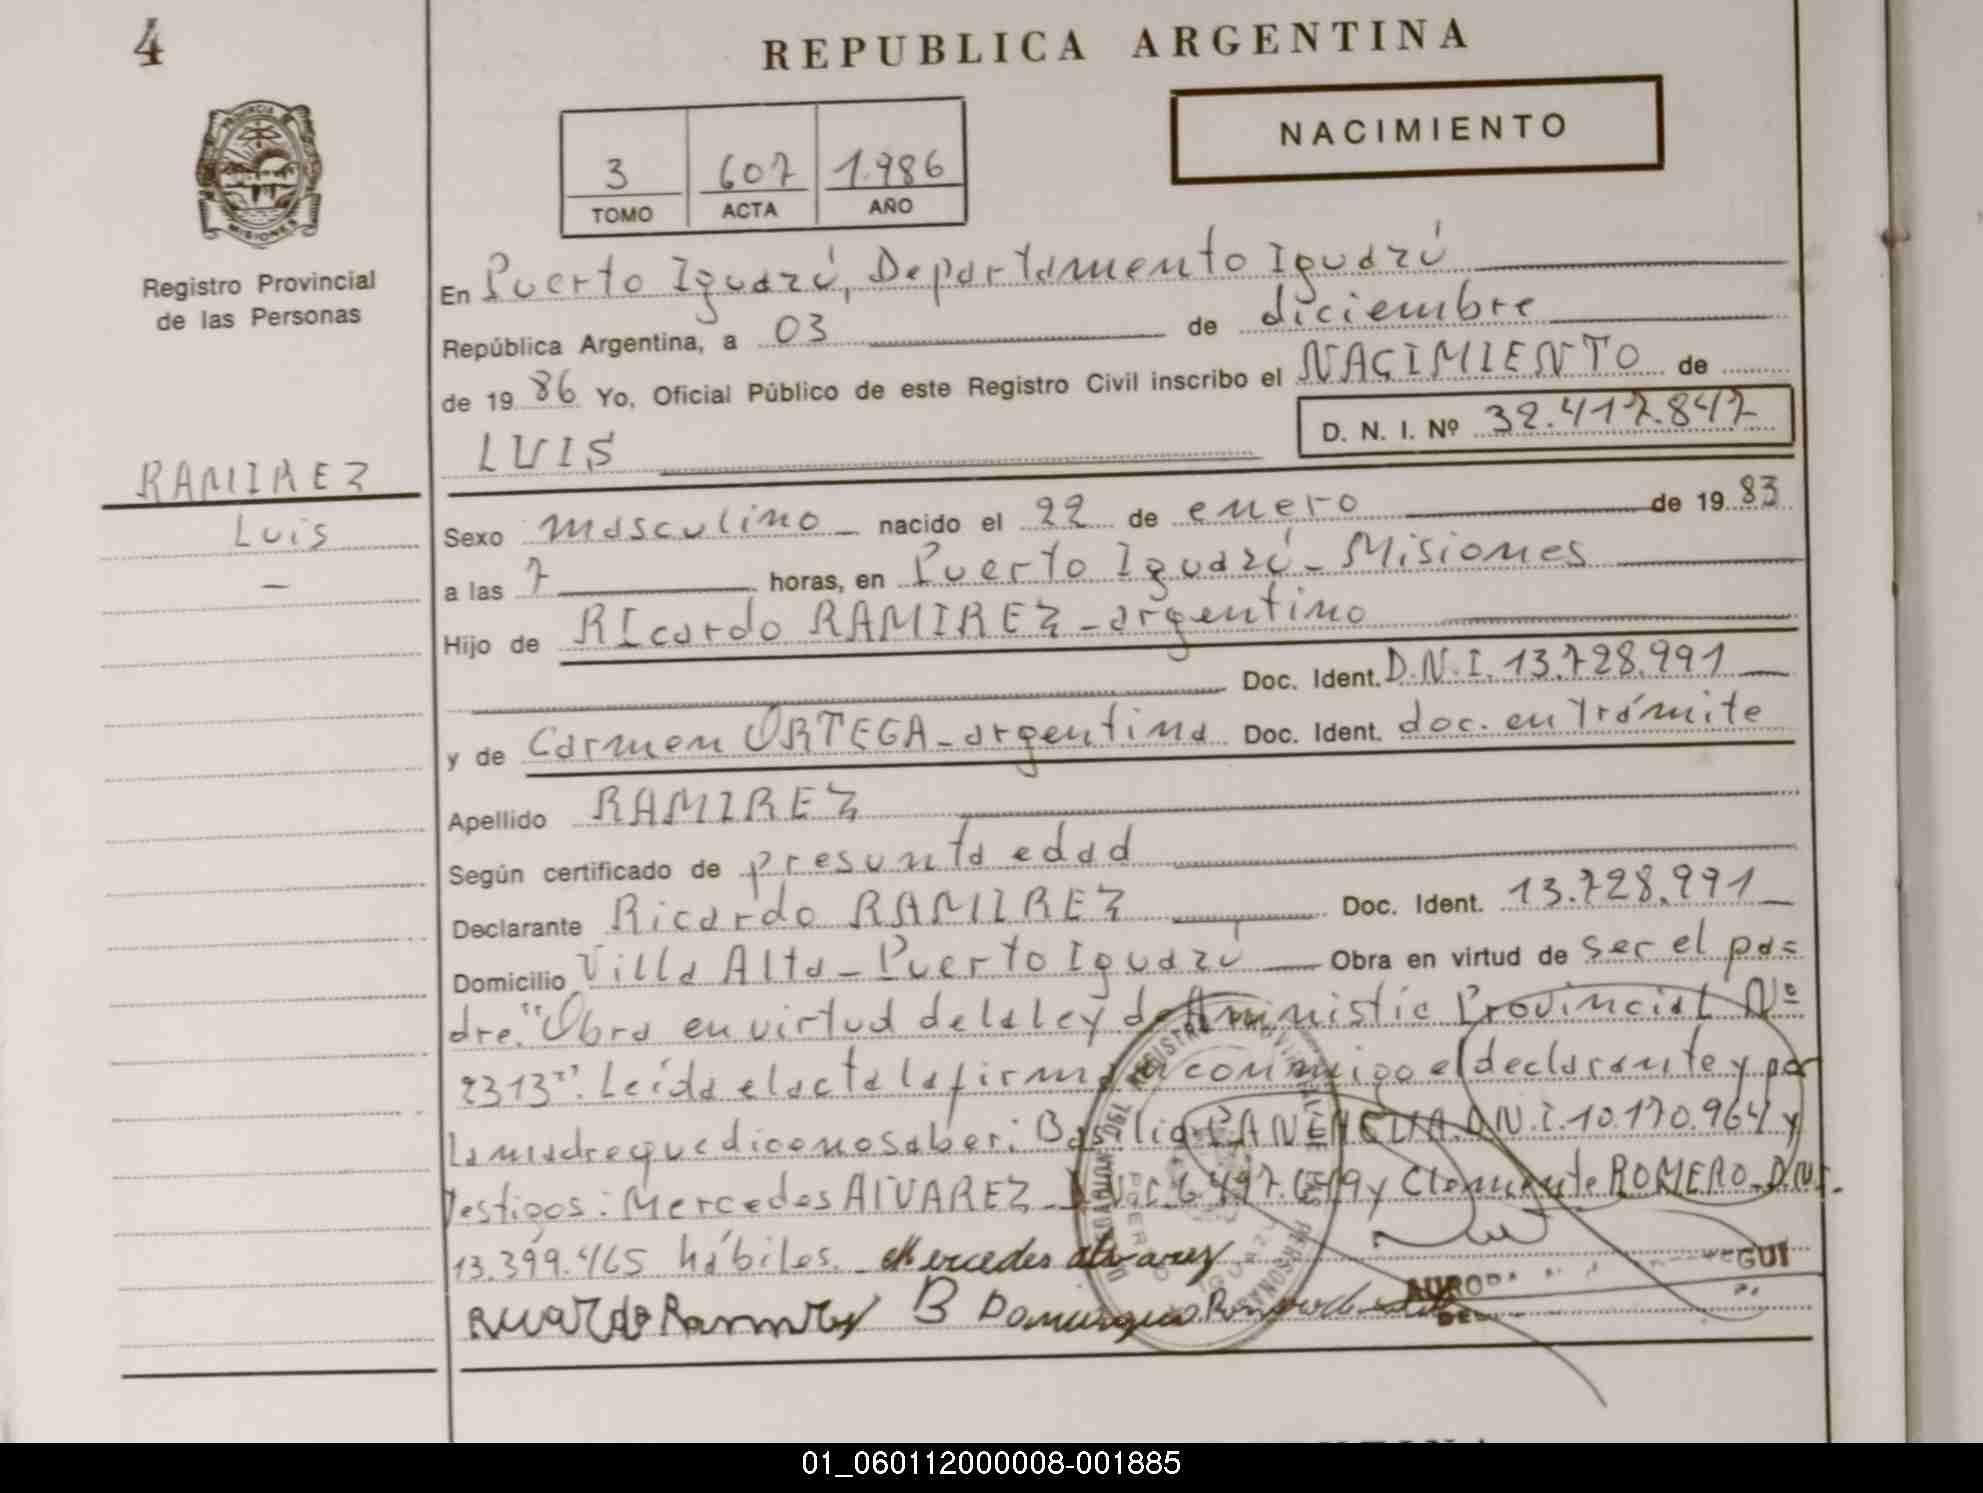 4
REPUBLICA ARGENTINA
PROVINCIA
MISIONES
3 607 1.986
TOMO ACTA AÑO
NACIMIENTO
Registro Provincial
de las Personas
En Puerto Iguazú, Departamento Iguazú
República Argentina, a 03 de diciembre
de 19 86 Yo, Oficial Público de este Registro Civil inscribo el NACIMIENTO de
LUIS D. N. I. Nº 32.417.847
RAMIREZ
Luis
–
Sexo masculino nacido el 22 de enero de 19 83
a las 7 horas, en Puerto Iguazú - Misiones
Hijo de RIcardo RAMIREZ - argentino
Doc. Ident. D.N.I. 13.728.991
y de Carmen ORTEGA - argentina Doc. Ident. doc. en trámite
Apellido RAMIREZ
Según certificado de presunta edad
Declarante Ricardo RAMIREZ Doc. Ident. 13.728.991
Domicilio Villa Alta - Puerto Iguazú Obra en virtud de ser el pa=
dre. "Obra en virtud de la ley de Provincial Nº
2313". Leída el acta la firma conmigo el declarante y por
la madre que dice no saber: Basilia D.N.I. 10.170.964 y
Testigos: Mercedes ALVAREZ y Clemente ROMERO - D.N.I.
13.399.465 hábiles. Mercedes alvarez
Ricardo Ramirez B
REGISTRO PROVINCIAL DE LAS PERSONAS
01_060112000008-001885